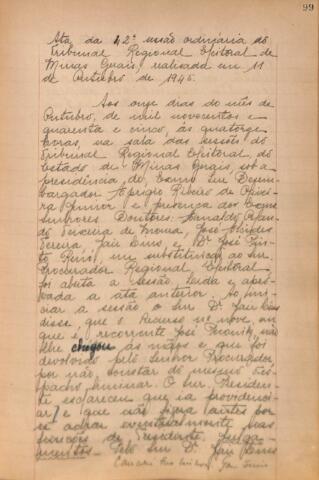 99
Ata da 42ª sessão ordinária do
Tribunal Regional Eleitoral de
Minas Gerais, realizada em 11
de Outubro de 1945.
Aos onze dias do mês de
Outubro, de mil novecentos e
quarenta e cinco, às quatorze
horas, na sala das sessões do
Tribunal Regional Eleitoral do
Estado de Minas Gerais, sob a
presidência do Exmo Snr Desem-
bargador
Ribeiro de Olivei-
ra Junior e presença dos Exmos
Senhores Doutores: Arnaldo
de Moura, José Alcides
Pereira, Jair Lins, e Dr José
em substituição ao Snr.
Procurador Regional Eleitoral
foi aberta a sessão, lida e apro-
vada a ata anterior. Ao ini-
ciar a sessão o Snr Dr. Jair Lins
disse que o Recurso nº nove em
que é recorrente José
não
lhe chegou às mãos e que foi
devolvido pelo Senhor Procurador
por não constar do mesmo des-
pacho liminar. O Snr. Presiden-
te esclareceu que ia providenci-
ar e que não fizera antes por
se achar eventualmente nas
funções de Presidente. Julga-
mentos. Pelo Snr Dr. Jair Lins